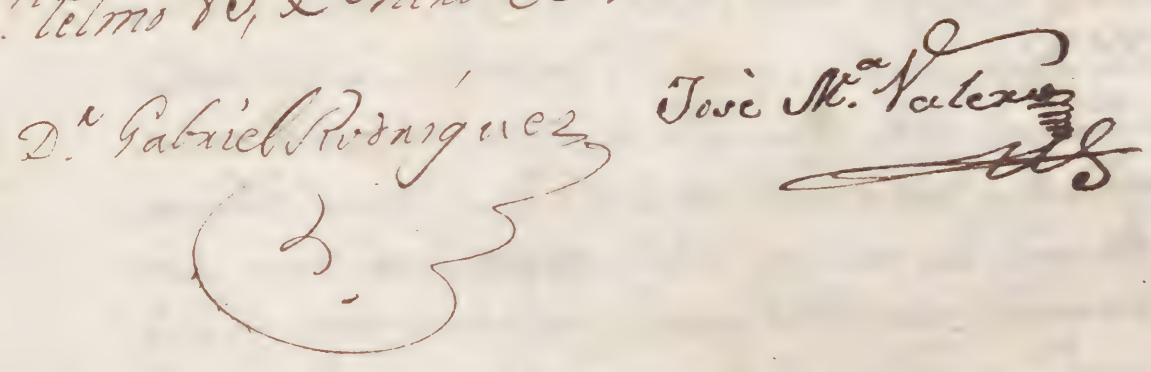 telmo
D.ⁿ Gabriel Rodríguez
José M.ª Valera